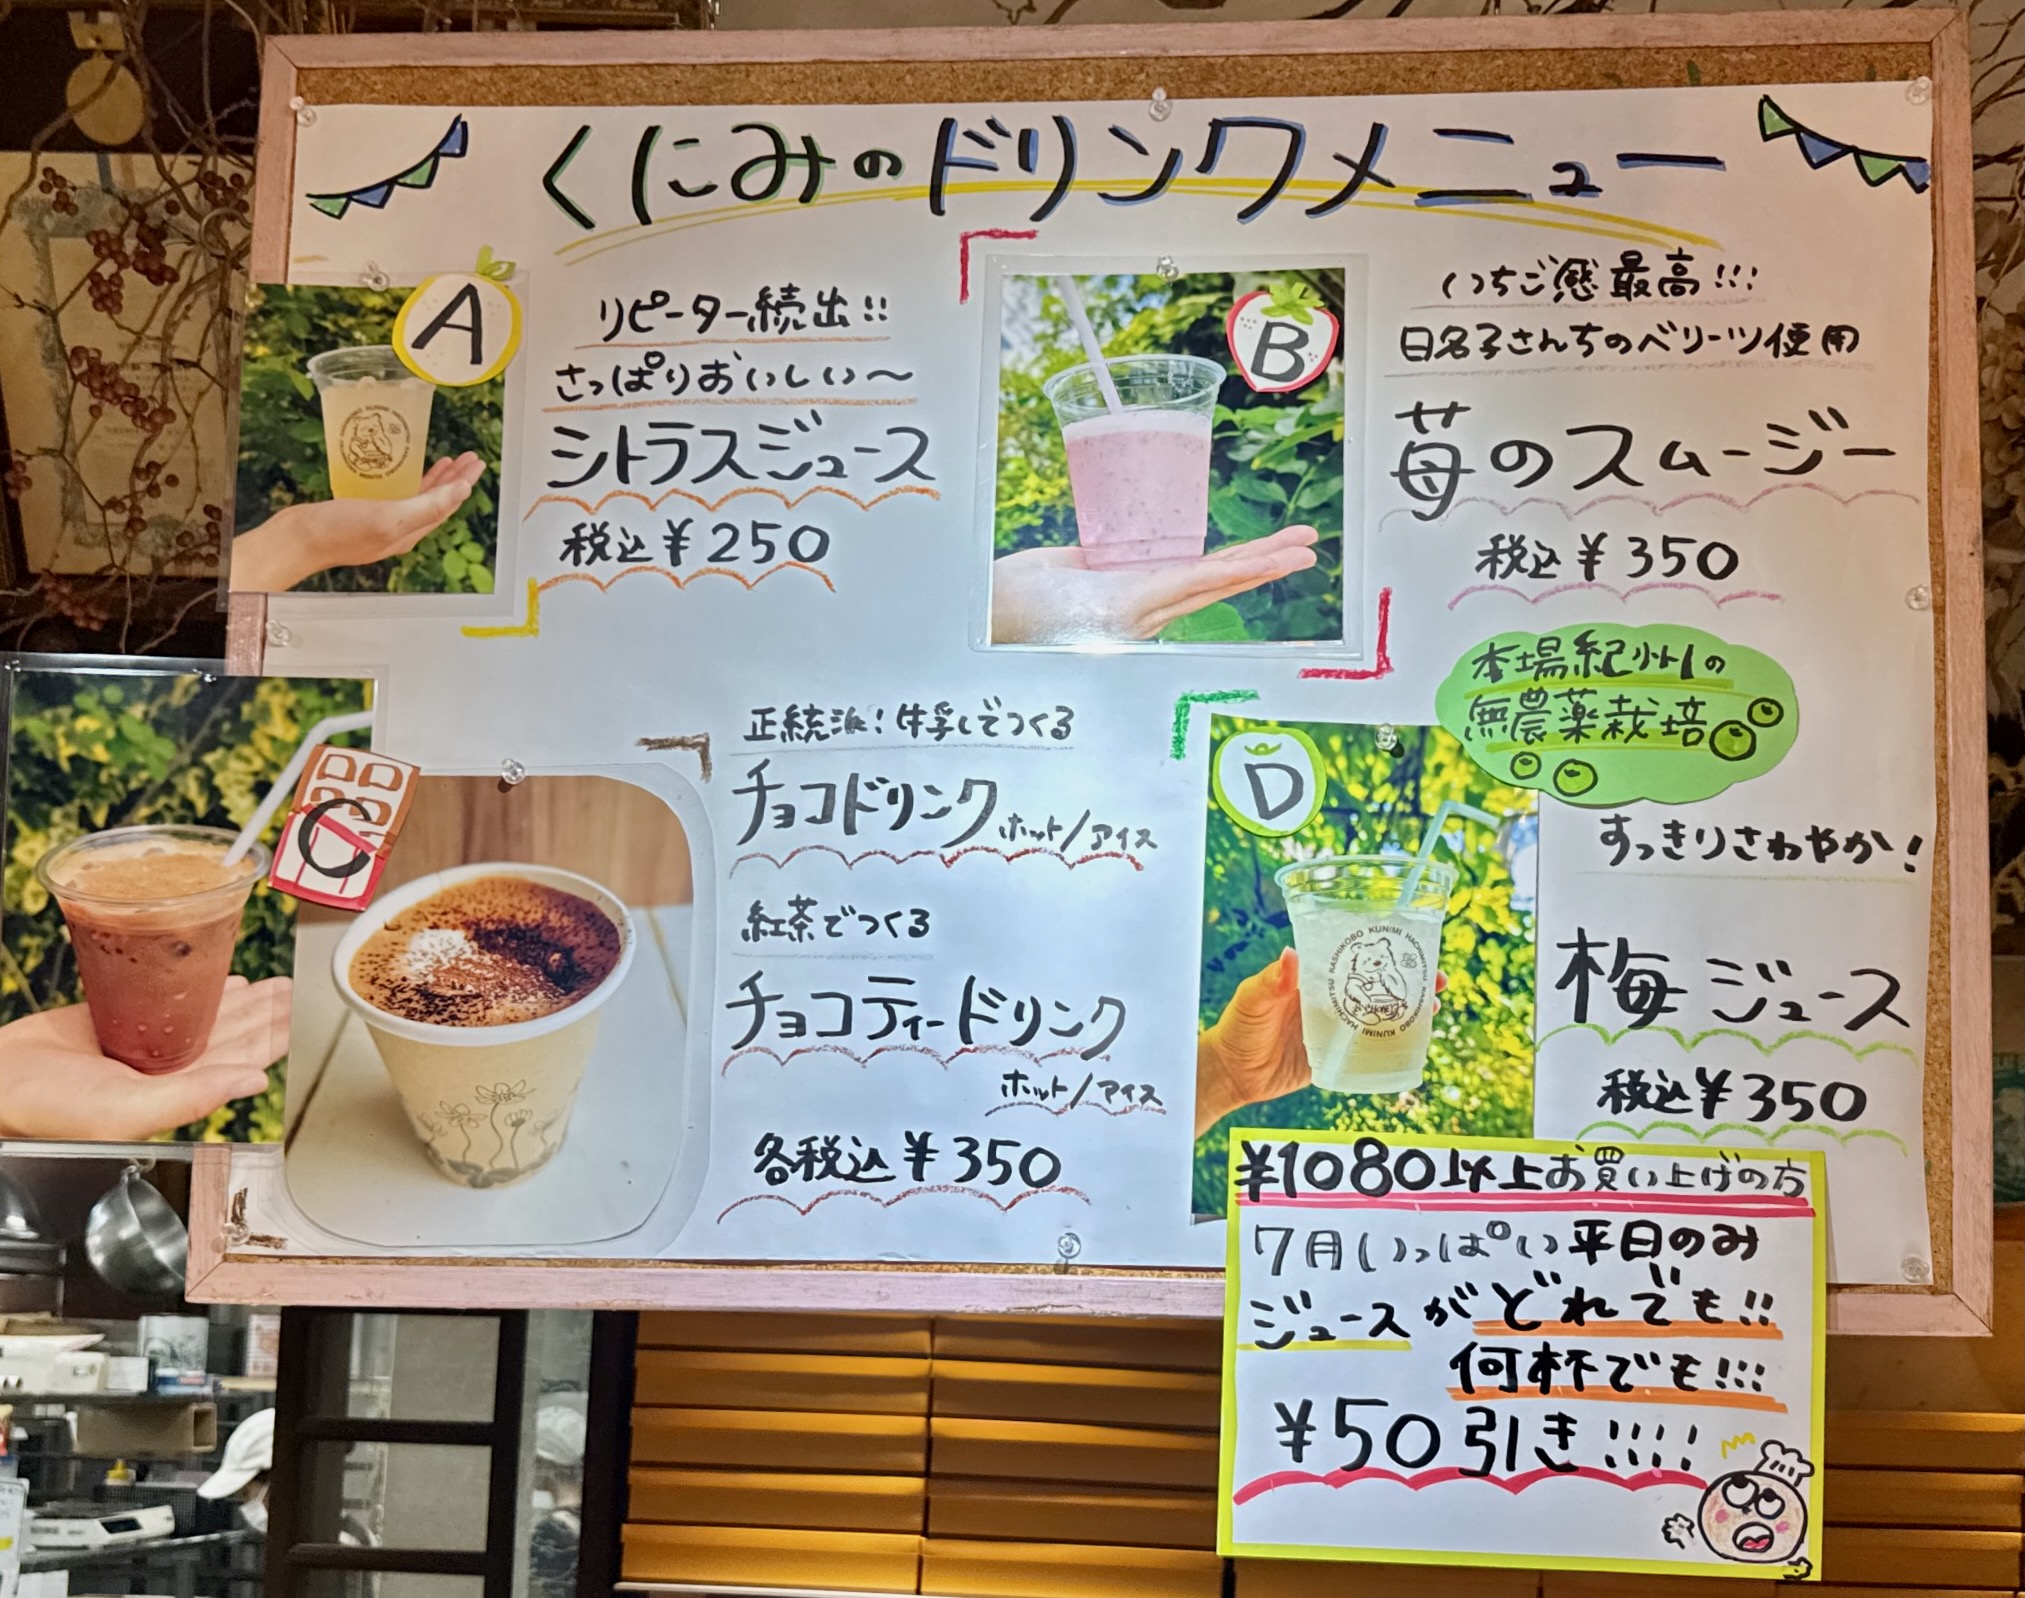 くにみのドリンクメニュー
A
リピーター続出!!
さっぱりおいしい〜
シトラスジュース
税込¥250
B
いちご感最高!!!
日名子さんちのベリーツ使用
苺のスムージー
税込¥350
C
正統派!牛乳でつくる
チョコドリンク ホット/アイス
紅茶でつくる
チョコティードリンク
ホット/アイス
各税込¥350
D
本場紀州の
無農薬栽培
すっきりさわやか!
梅ジュース
税込¥350
HACHIMITSU KASHIKOBO KUNIMI HACHIMITSU KASHIKOBO KUNIMI
¥1080以上お買い上げの方
7月いっぱい平日のみ
ジュースがどれでも!!
何杯でも!!!
¥50引き!!!!